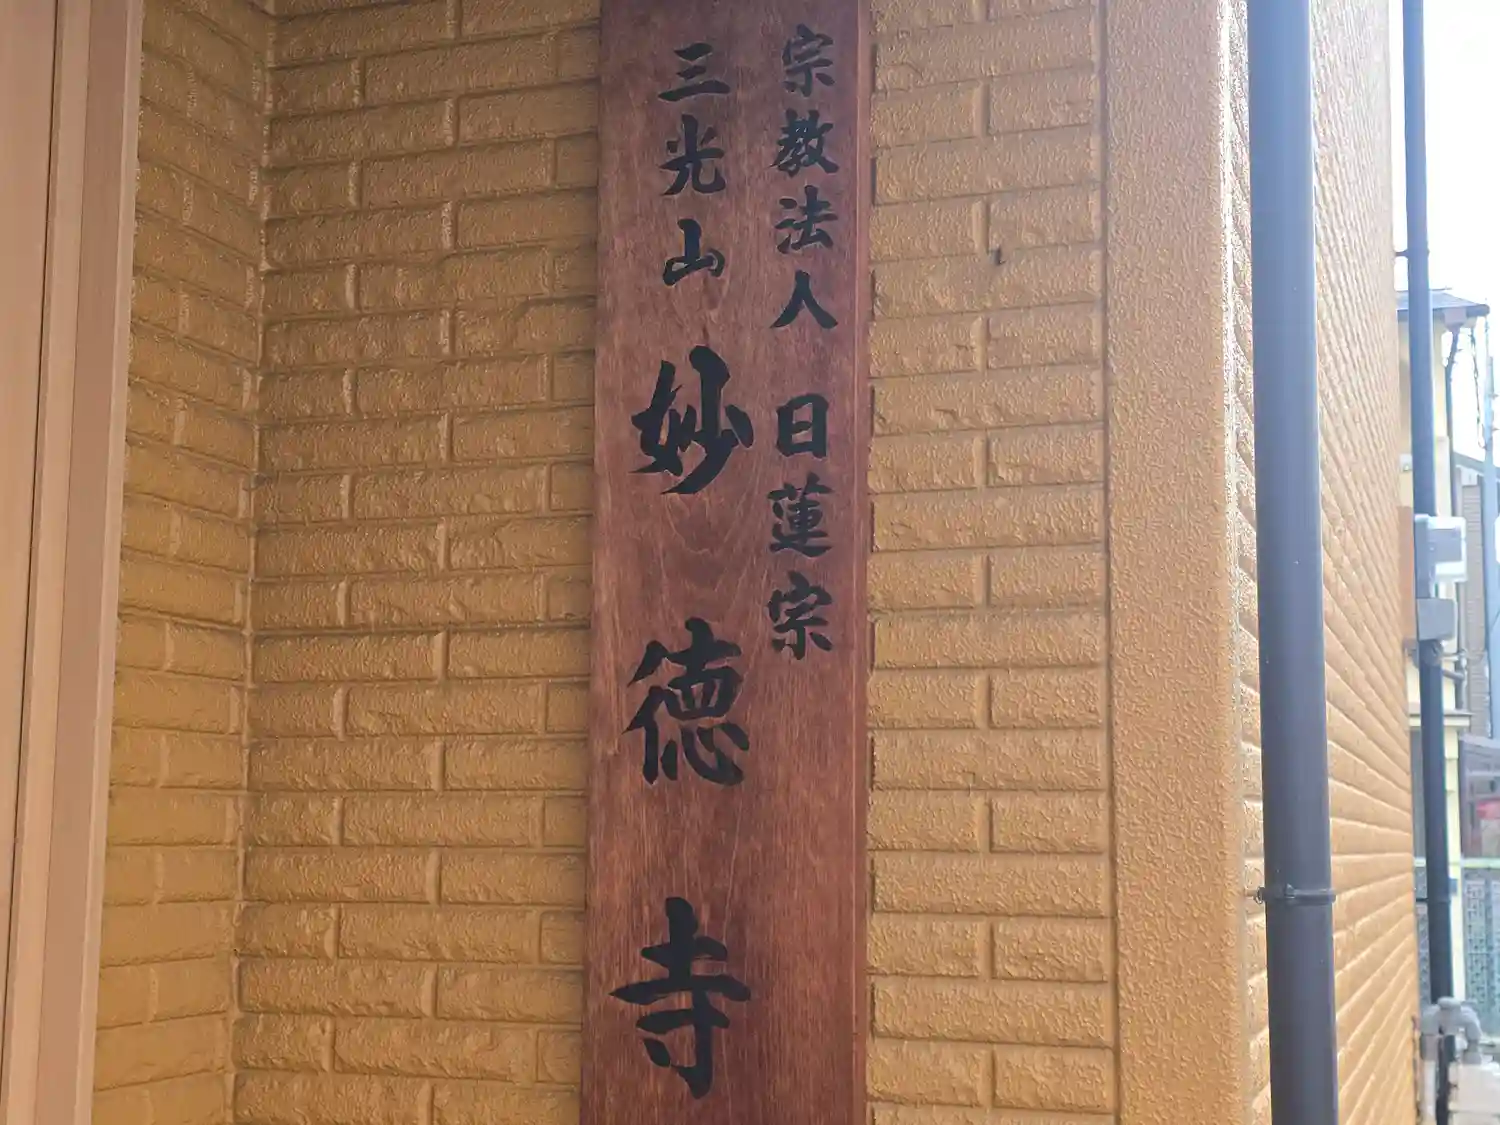 宗教法人 日蓮宗
三光山 妙徳寺